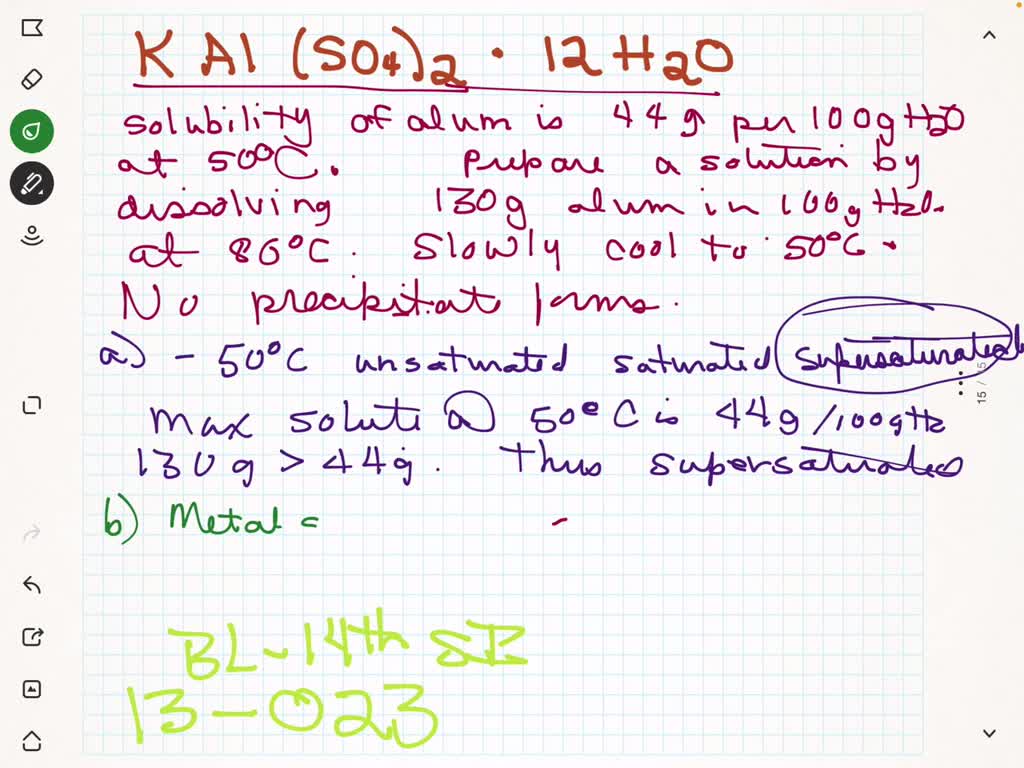 KAl(SO4)2 · 12H2O
solubility of alum is 44g per 100g H2O
at 50°C. Prepare a solution by
dissolving 130g alum in 100g H2O.
at 80°C. Slowly cool to 50°C.
No precipitat forms.
a) - 50°C unsaturated saturated supersaturated
Max solute @ 50°C is 44g/100gH2
130g > 44g. Thus supersaturated
b) Metal =
BL-14th SI
13-023
15 / 15